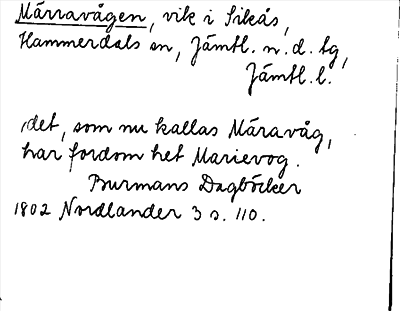 Märravågen, vik i Sikås,
Hammerdals sn, Jämtl. n. d. tg,
Jämtl. l.
det, som nu kallas Märavåg,
har fordom het Marievog.
Burmans Dagböcker
1802 Nordlander 3 s. 110.